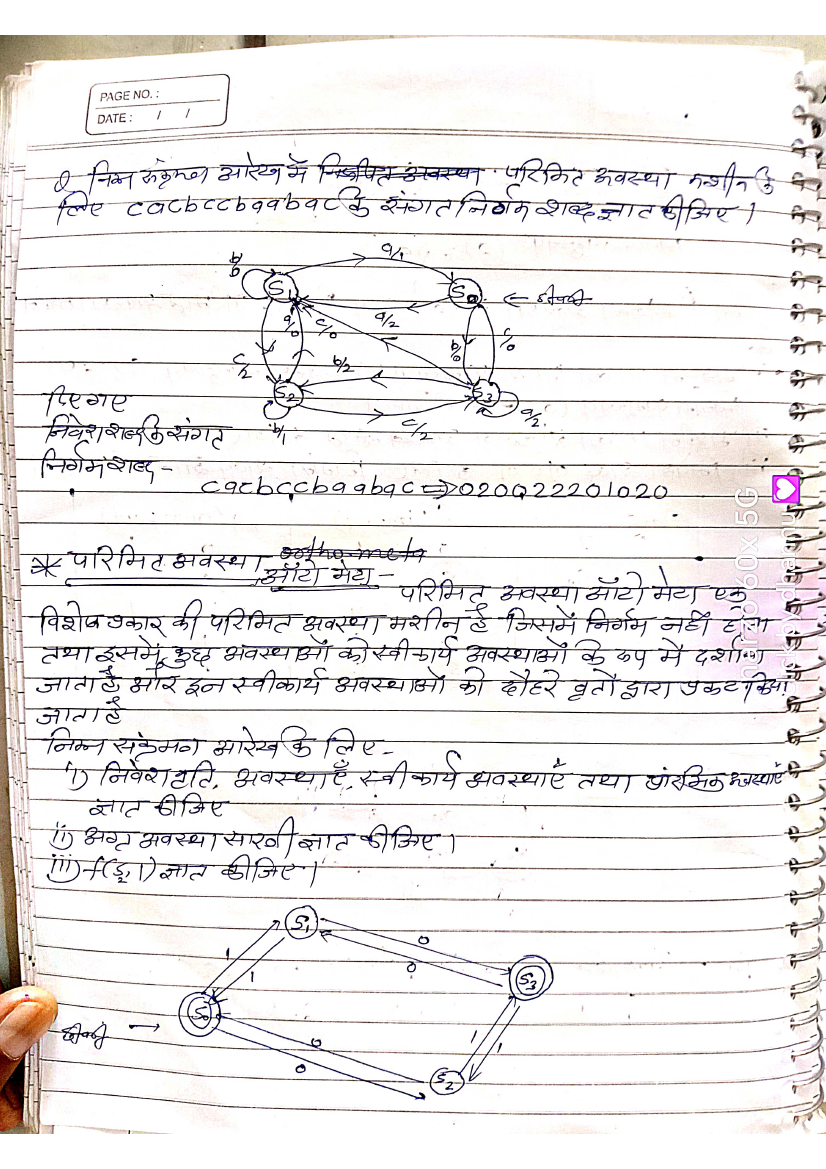 PAGE NO. :
DATE : / /
Q निम्न संक्रमण आरेख में निरूपित अवस्था परिमित अवस्था मशीन के
लिए cacbccbaabac के संगत निर्गम शब्द ज्ञात कीजिए।
a/1
S1
S0
a/2
a/0
c/0
b/0
c/0
c/2
b/2
S2
S3
दिए गए
b/1
c/2
a/2
निवेश शब्द के संगत
निर्गम शब्द -
cacbccbaabac => 020022201020
* परिमित अवस्था
ऑटो मेटा -
परिमित अवस्था ऑटो मेटा एक
विशेष प्रकार की परिमित अवस्था मशीन है जिसमें निर्गम नहीं होता
तथा इसमें कुछ अवस्थाओं को स्वीकार्य अवस्थाओं के रूप में दर्शाया
जाता है और इन स्वीकार्य अवस्थाओं को दोहरे वृतों द्वारा प्रकट किया
जाता है
निम्न संक्रमण आरेख के लिए -
i) निवेश प्रति, अवस्थाएँ, स्वीकार्य अवस्थाएँ तथा प्रारंभिक अवस्थाएँ
ज्ञात कीजिए
ii) अग्र अवस्था सारणी ज्ञात कीजिए।
iii) f(S2, 1) ज्ञात कीजिए।
S1
0
1
0
1
S3
S0
0
1
1
0
S2